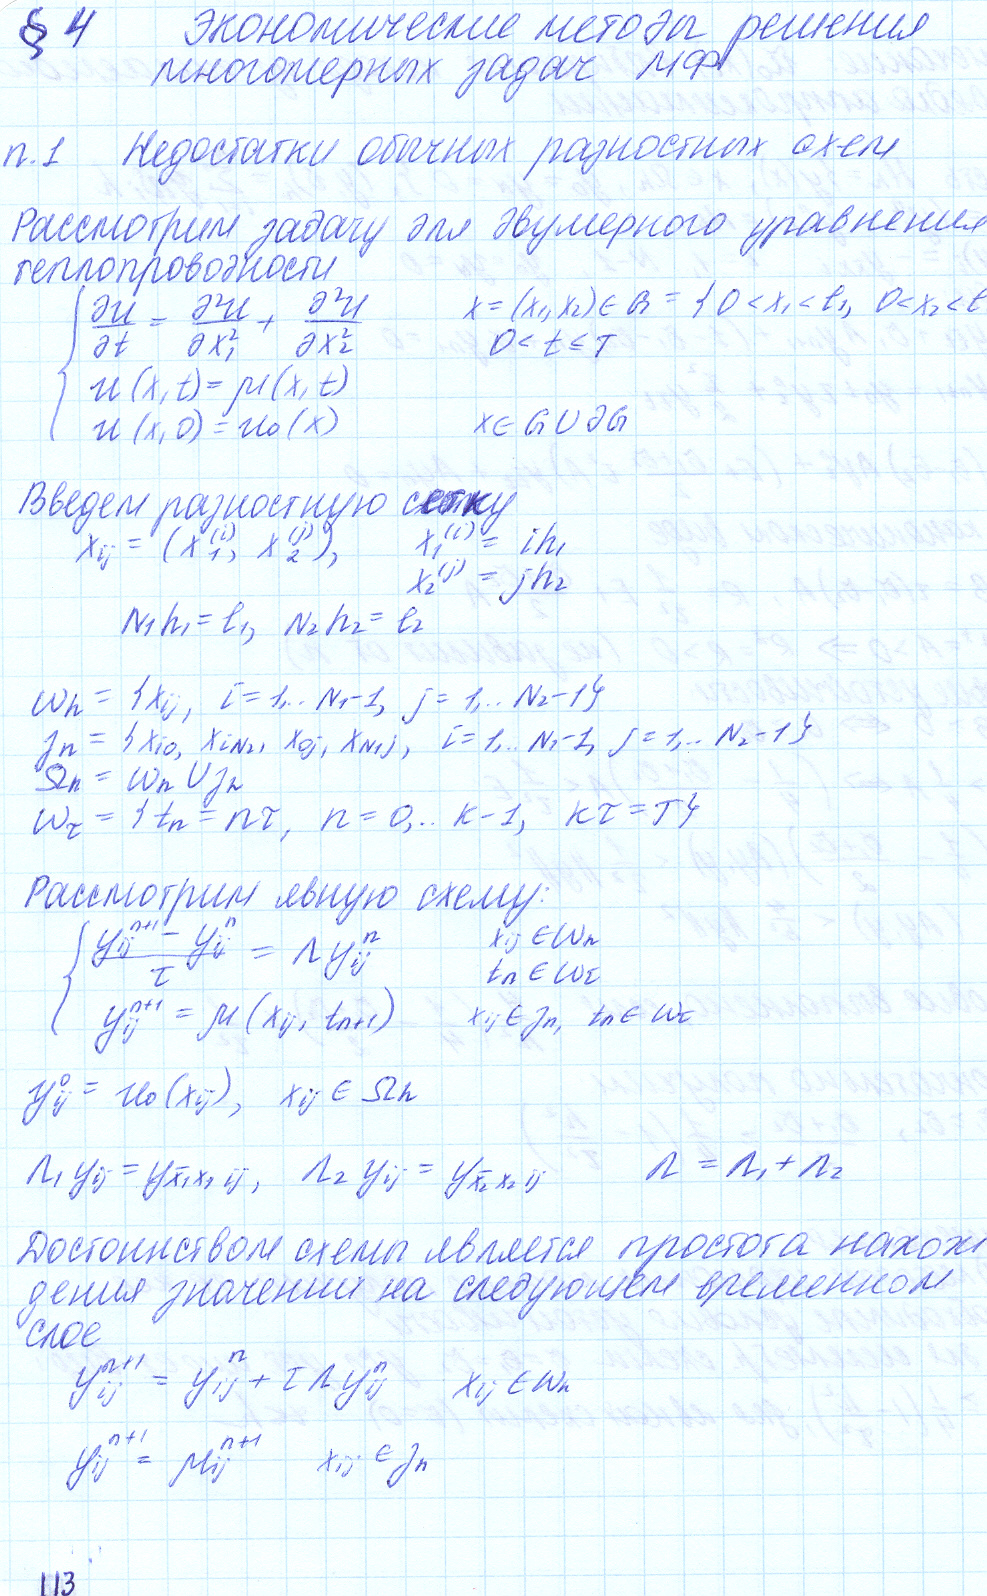 § 4 Экономические методы решения
многомерных задач МФ
п.1 Недостатки обычных разностных схем
Рассмотрим задачу для двумерного уравнения
теплопроводности
∂u/∂t = ∂²u/∂x₁² + ∂²u/∂x₂² x = (x₁, x₂) ∈ G = {0 < x₁ < l₁, 0 < x₂ < l
0 < t ≤ T
u(x, t) = μ(x, t)
u(x, 0) = u₀(x) x ∈ G ∪ ∂G
Введем разностную сетку
x_ij = (x₁^(i), x₂^(j)), x₁^(i) = ih₁
x₂^(j) = jh₂
N₁h₁ = l₁, N₂h₂ = l₂
ω_h = {x_ij, i = 1,.. N₁-1, j = 1,.. N₂-1}
γ_h = {x_i0, x_iN₂, x_0j, x_N₁j, i = 1,.. N₁-1, j = 1,.. N₂-1}
Ω_h = ω_h ∪ γ_h
ω_τ = {t_n = nτ, n = 0,.. K-1, Kτ = T}
Рассмотрим явную схему:
(y_ij^(n+1) - y_ij^n)/τ = Λy_ij^n x_ij ∈ ω_h
t_n ∈ ω_τ
y_ij^(n+1) = μ(x_ij, t_n+1) x_ij ∈ γ_h, t_n ∈ ω_τ
y_ij^0 = u₀(x_ij), x_ij ∈ Ω_h
Λ₁y_ij = y_x̄₁x₁ ij, Λ₂y_ij = y_x̄₂x₂ ij Λ = Λ₁ + Λ₂
Достоинством схемы является простота нахож
дения значений на следующем временном
слое
y_ij^(n+1) = y_ij^n + τΛy_ij^n x_ij ∈ ω_h
y_ij^(n+1) = μ_ij^(n+1) x_ij ∈ γ_h
113